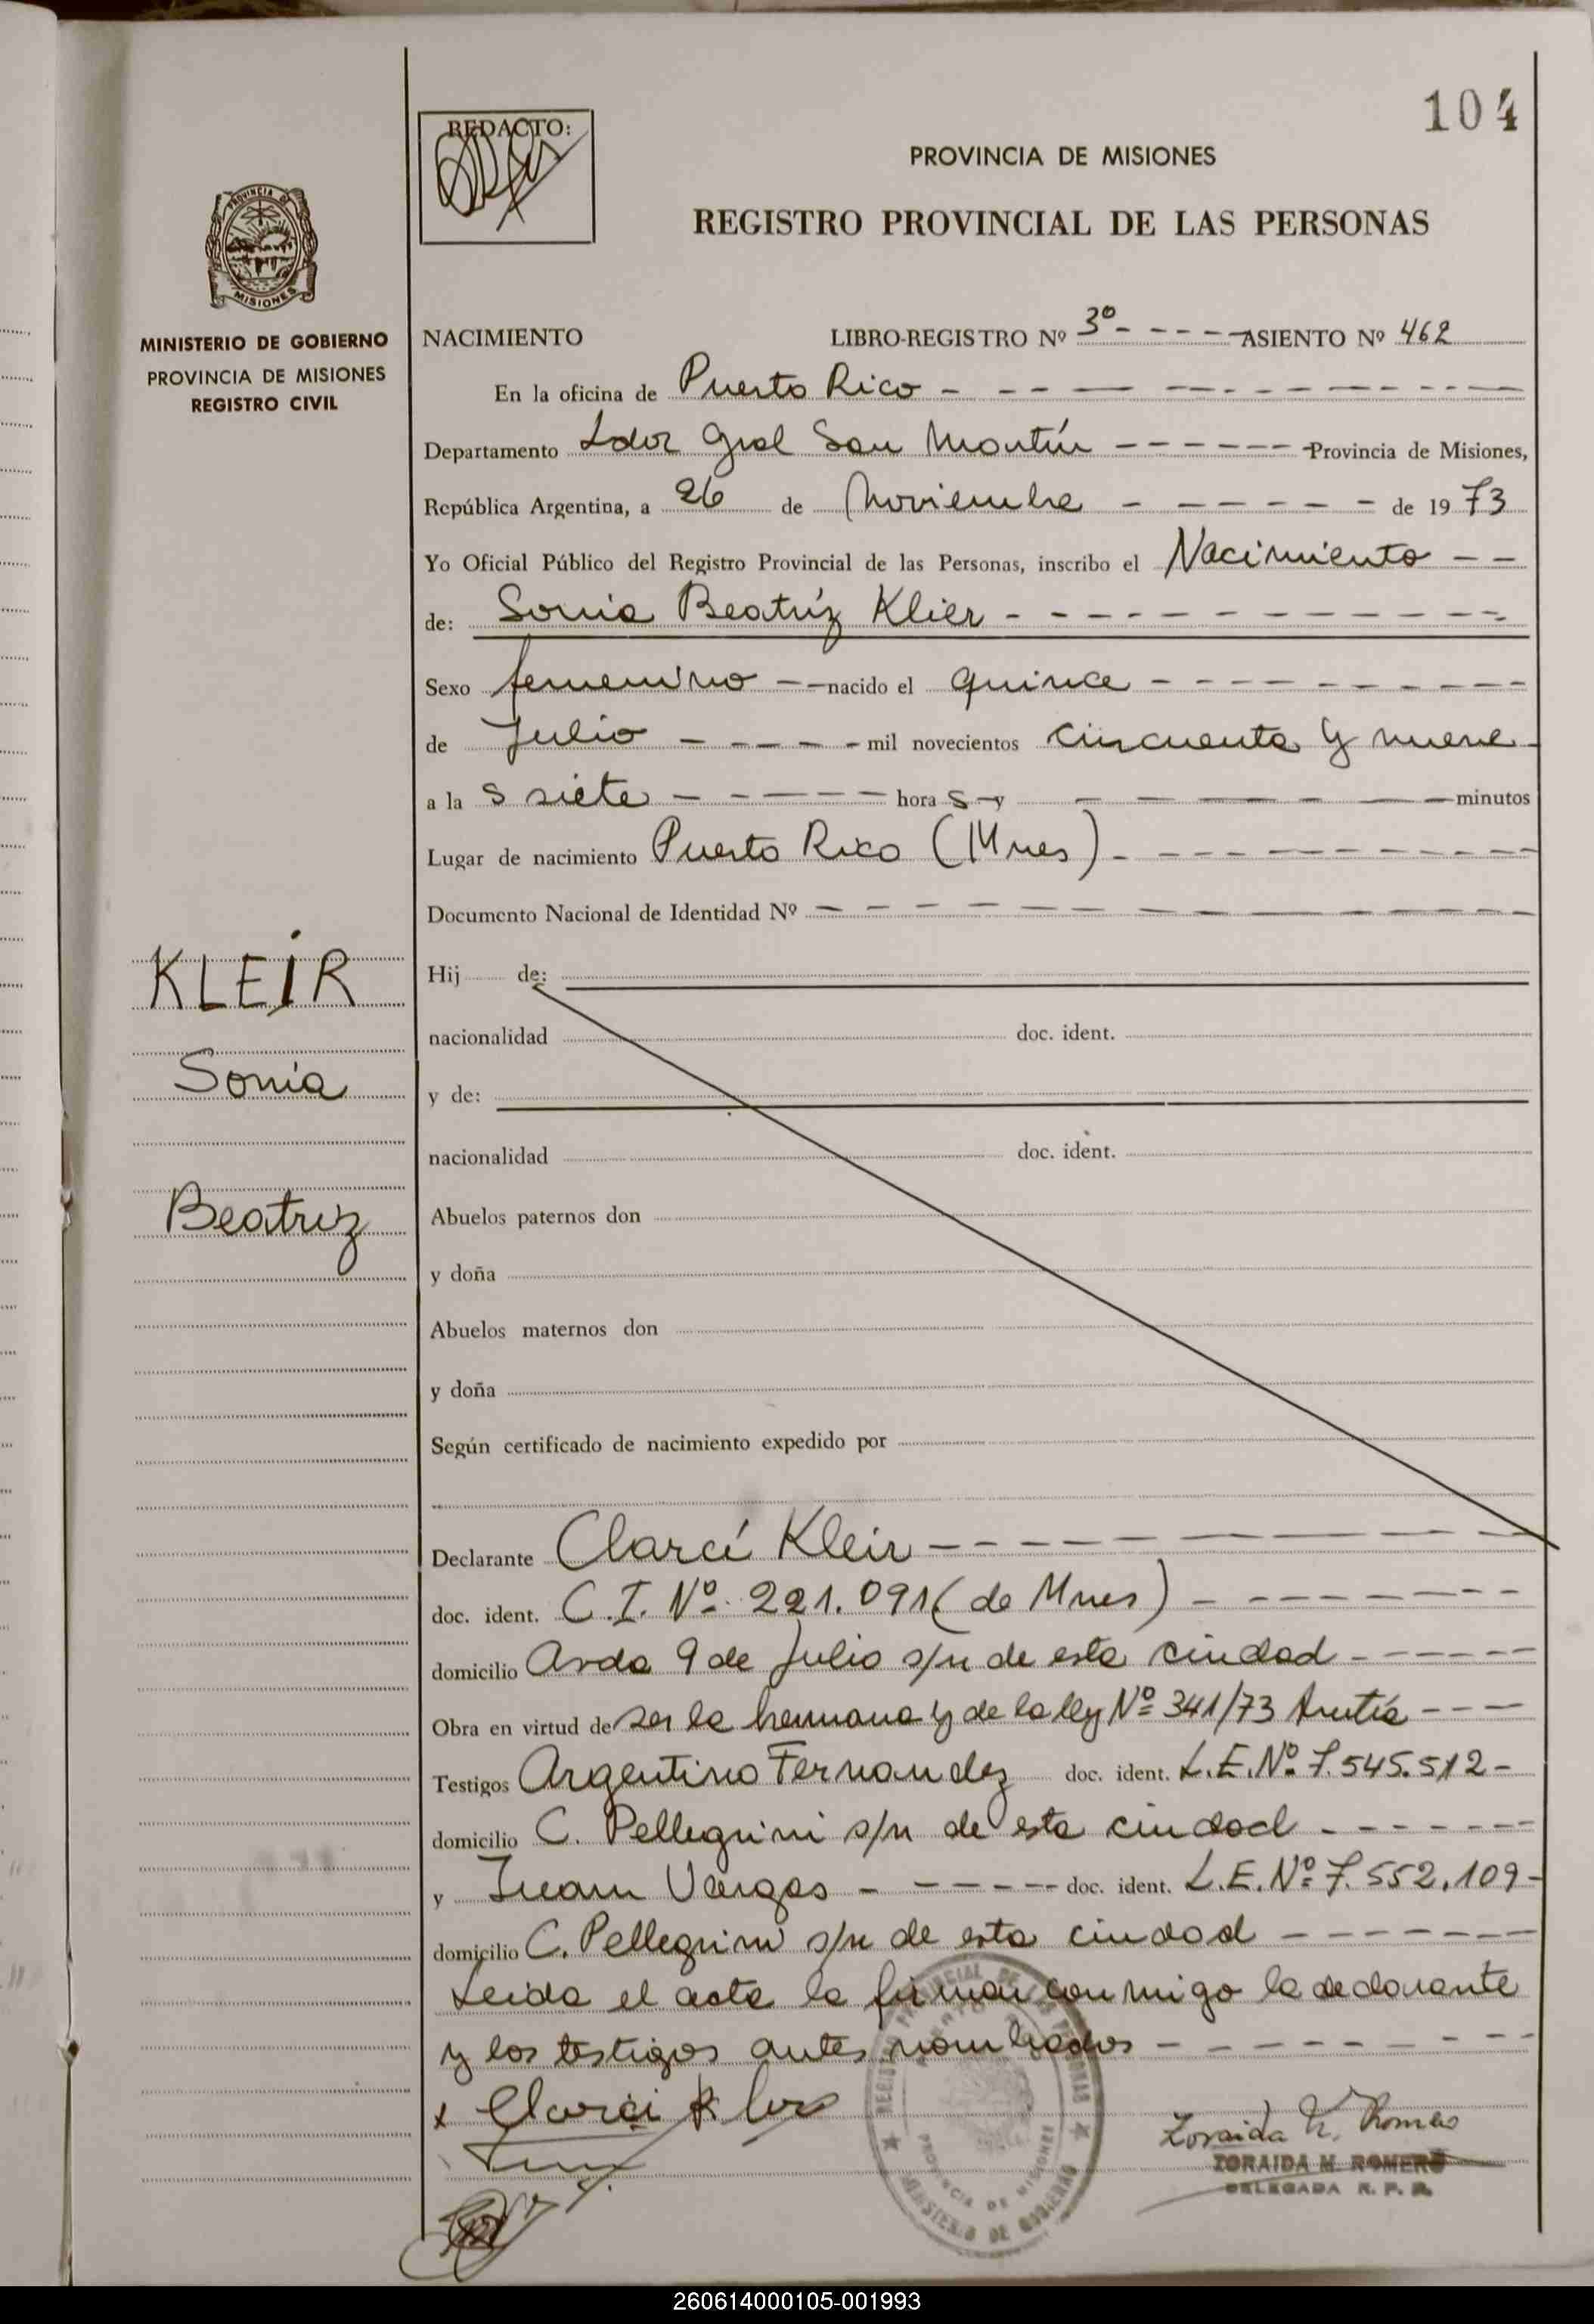 104
REDACTO:
PROVINCIA DE MISIONES
REGISTRO PROVINCIAL DE LAS PERSONAS
PROVINCIA DE
MISIONES
MINISTERIO DE GOBIERNO
PROVINCIA DE MISIONES
REGISTRO CIVIL
NACIMIENTO LIBRO-REGISTRO Nº 3º - - - - - ASIENTO Nº 462
En la oficina de Puerto Rico - - - - - - - - - -
Departamento Ldor Gral San Martín - - - - - - Provincia de Misiones,
República Argentina, a 26 de Noviembre - - - - - - de 1973
Yo Oficial Público del Registro Provincial de las Personas, inscribo el Nacimiento - -
de: Sonia Beatríz Klier - - - - - - - - - - -
Sexo femenino - - nacido el quince - - - - - - - - - -
de Julio - - - - - mil novecientos cincuenta y nueve
a las siete - - - - - - horas y - - - - - - - minutos
Lugar de nacimiento Puerto Rico (Mnes) - - - - - - - - - -
Documento Nacional de Identidad Nº - - - - - - - - - - - -
Hij de:
nacionalidad doc. ident.
y de:
nacionalidad doc. ident.
Abuelos paternos don
y doña
Abuelos maternos don
y doña
Según certificado de nacimiento expedido por
KLEIR
Sonia
Beatriz
Declarante Clarcí Kleir - - - - - - - - - -
doc. ident. C.I. Nº 221.091 (de Mnes) - - - - - - - -
domicilio Avda 9 de Julio s/n de esta ciudad - - - - - -
Obra en virtud de ser la hermana y de la ley Nº 341/73 - - -
Testigos Argentino Fernandez doc. ident. L.E. Nº 7.545.512 -
domicilio C. Pellegrini s/n de esta ciudad - - - - - - -
y Juan Vargas - - - - - - doc. ident. L.E. Nº 7.552.109 -
domicilio C. Pellegrini s/n de esta ciudad - - - - - - -
Leida el acta la firman conmigo la declarante
y los testigos antes nombrados - - - - - - - -
x Clarci
REGISTRO PROVINCIAL DE LAS PERSONAS
PROVINCIA DE MISIONES
MINISTERIO DE GOBIERNO
Zoraida M. Romero
ZORAIDA M. ROMERO
DELEGADA R. P. P.
260614000105-001993